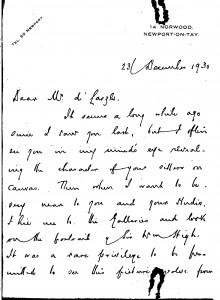 TEL. 29 NEWPORT.
14 NORWOOD,
NEWPORT-ON-TAY.
23 December 1930
Dear Mr d'
It seems a long while ago
since I saw you last, but I often
see you in my mind's eye reveal-
ing the character of your sitters on
canvas. Then when I want to be
very near to you and your studio,
I hie me to the Galleries and look
on the portrait of Sir Wm High.
It was a rare privilege to be per-
mitted to see this picture evolve from